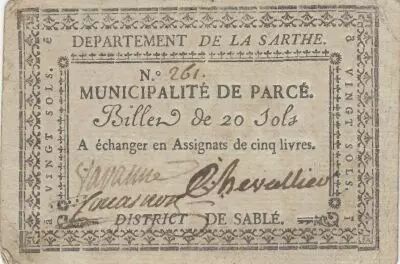 DEPARTEMENT DE LA SARTHE.
N.° 261.
MUNICIPALITÉ DE PARCÉ.
Billet de 20 Sols
A échanger en Assignats de cinq livres.
Chevallier
DISTRICT DE SABLÉ.
à VINGT SOLS.
à VINGT SOLS